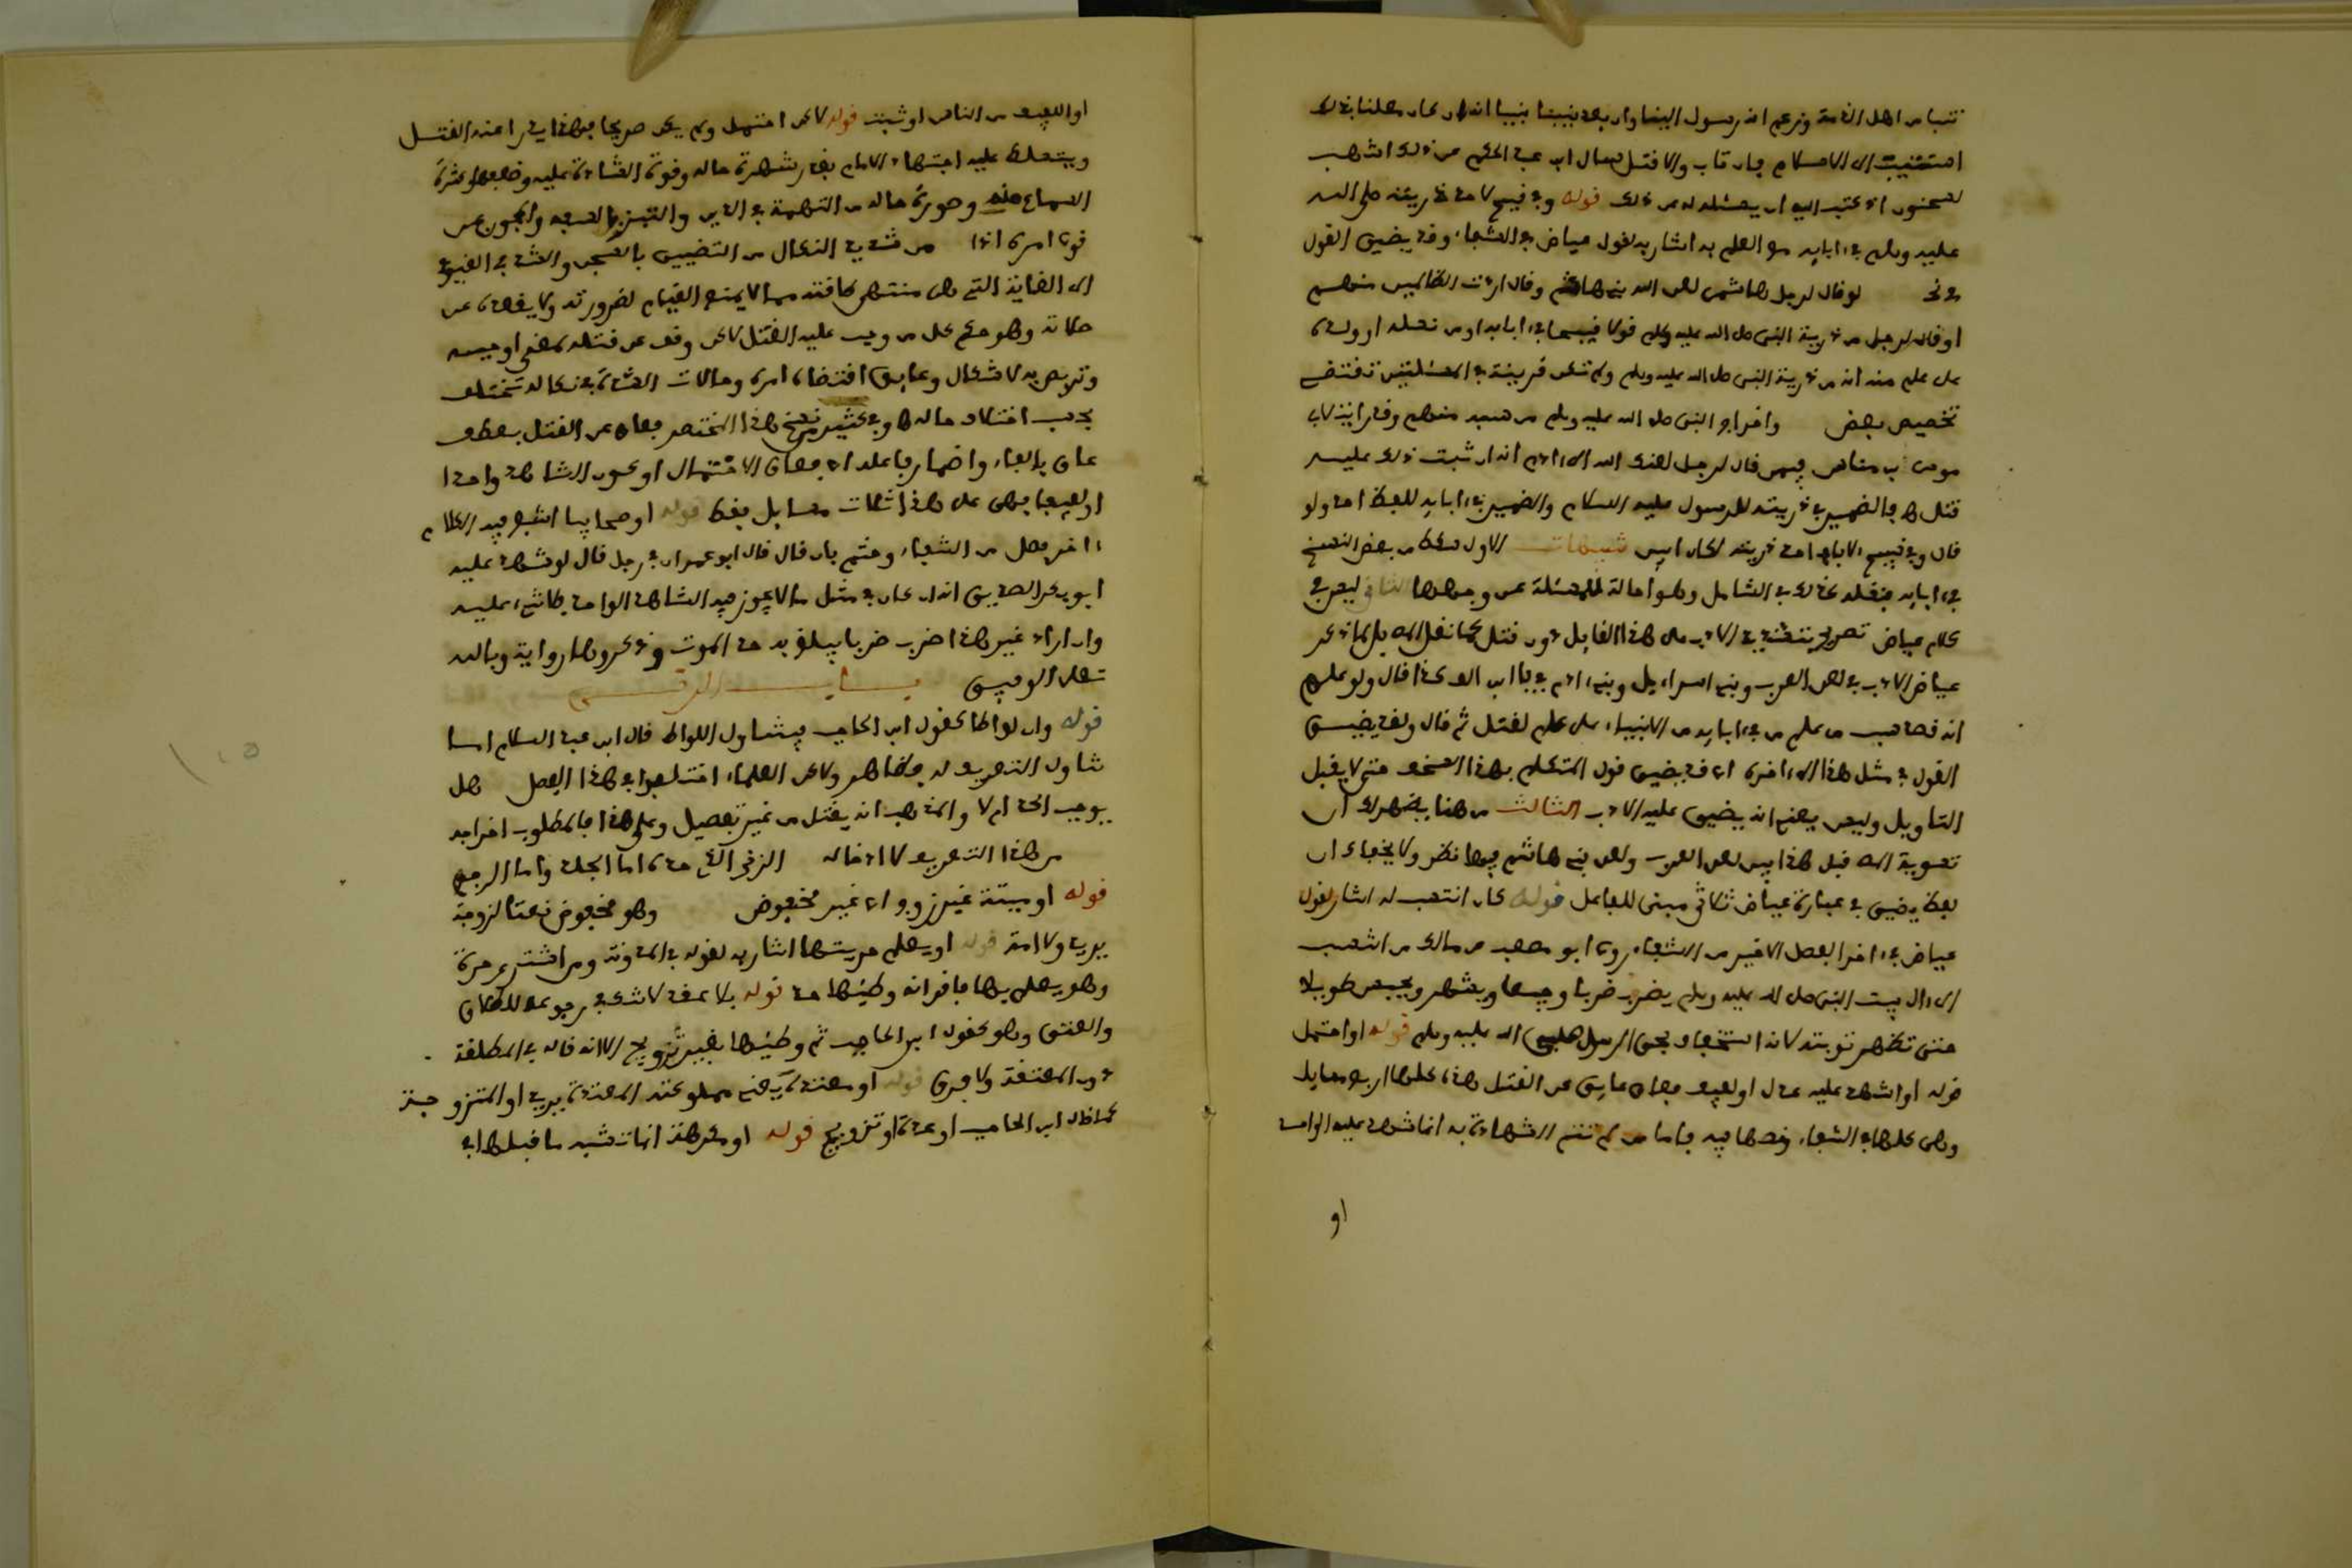 تنبا من اهل الذمة وزعم انه رسول الينا وان بعد نبينا نبيا انه ان كان معلنا بذلك
استتيب الى الاسلام فان تاب والا قتل سال ابن عبد الحكم عن ذلك اشهب
لسحنون اذ كتب اليه ان يسئله له عن ذلك قوله وفي قبيح لاحد ذريته صلى الله
عليه وسلم في ءابايه مع العلم به اشار به لقول عياض في الشفاء وقد يضيق القول
في نحو لو قال لرجل هاشمي لعن الله بني هاشم وقال اردت الظالمين منهم
او قال لرجل من ذرية النبي صلى الله عليه وسلم قولا قبيحا في ءابايه او من نسله او ولده
على علم منه انه من ذرية النبي صلى الله عليه وسلم ولم تكن قرينة في المسئلتين تقتضي
تخصيص بعض واخراج النبي صلى الله عليه وسلم من سبه منهم وقد رايت لابي
موسى بن مناس فيمن قال لرجل لعنك الله الى ءادم انه ان ثبت ذلك عليه
قتل فالضمير في ذريته للرسول عليه السلام والضمير في ءابايه للفظ احد ولو
قال وفي قبيح لاباء احد ذريته لكان ابين تنبيهات الاول سقط من بعض النسخ
في ءابايه فنقله كذلك في الشامل وهو احالة للمسئلة عن وجهها الثاني ليس في
كلام عياض تصريح بتشديد الادب على هذا القايل دون قتل كما نقل المص بل انما ذكر
عياض الادب في لعن العرب وبني اسرايل وبني ءادم في باب العد كذا قال ولو علم
انه قصد سب من علم من ءابايه من الانبياء على علم لقتل ثم قال ولقد يضيق
القول في مثل هذا الى ءاخره اي قد يضيق قول المتكلم بهذا السخف حتى لا يقبل
التاويل وليس يعني انه يضيق عليه الادب الثالث من هنا يظهر لك ان
تسوية المص قبل هذا بين لعن العرب ولعن بني هاشم فيها نظر ولا يخفاك ان
لفظ يضيق في عبارة عياض ثلاثي مبني للفاعل قوله كان انتسب له اشار لقول
عياض في ءاخر الفصل الاخير من الشفاء روى ابو مصعب عن مالك من انتسب
الى ءال بيت النبي صلى الله عليه وسلم يضرب ضربا وجيعا ويشهر ويحبس طويلا
حتى تظهر توبته لانه استخفاف بحق الرسول صلى الله عليه وسلم قوله او احتمل
قوله او شهد عليه عدل او لفيف فعاق عايق عن القتل هذه كلها اربع مسايل
وهي كلها في الشفاء ونصها فيه فاما من لم تتم الشهادة به انما شهد عليه الواحد
او
او اللفيف من الناس او ثبت قوله لاكن احتمل ولم يكن صريحا فهذا يدرا عنه القتل
ويتسلط عليه اجتهاد الامام بقدر شهرة حاله وقوة الشهادة عليه وضعفها وكثرة
السماع منه وصورة حاله من التهمة في الدين والنبز بالسفه والمجون فمن
قوي امره اذاقه من شديد النكال من التضييق بالسجن والشد في القيود
الى الغاية التي هي منتهى طاقته مما لا يمنعه القيام لضرورته ولا يقعده عن
صلاته وهو حكم كل من وجب عليه القتل لاكن وقف عن قتله لمعنى اوجبه
وتربص به لاشكال وعايق اقتضاه امره وحالات الشدة في نكاله تختلف
بحسب اختلاف حاله وفي كثير من نسخ هذا المختصر فعاق عن القتل بعطف
عاق بالفاء واضمار فاعله اي فعاق الاحتمال او كون الشاهد واحدا
او لفيفا فهي على هذا ثلاث مسايل فقط قوله او صحابيا اشبع فيه الكلام
ءاخر فصل من الشفاء وختم بان قال قال ابو عمران في رجل قال لو شهد عليه
ابو بكر الصديق انه ان كان في مثل ما لا يجوز فيه الشاهد الواحد فلا شيء عليه
وان اراد غير هذا ضرب ضربا يبلغ به حد الموت وذكروها رواية وبالله
تعلى التوفيق باب الزنى
قوله وان لواطا كقول ابن الحاجب فيتناول اللواط قال ابن عبد السلام اما
تناول التعريف له فظاهر ولاكن العلماء اختلفوا في هذا الفصل هل
يوجب الحد ام لا والمذهب انه يقتل من غير تفصيل وعلى هذا فالمطلوب اخراجه
من هذا التعريف لا ادخاله الزنى الذي حده اما الجلد واما الرجم
قوله او ميتة غير زوج اي غير مخفوض وهو مخفوض نعتا لزوجة
يريد ولا امة قوله او يعلم حريتها اشار به لقوله في المدونة ومن اشترى حرة
وهو يعلم بها فاقر انه وطئها حد قوله بلا عقد لاشك في رجوعه للطلاق
والعتق وهو كقول ابن الحاجب ثم وطئها بغير تزويج الا انه قاله في المطلقة
دون المعتقة ولا فرق قوله او معتدة يعني مملوكته المعتدة يريد او المتزوجة
كما قال ابن الحاجب او عدة او تزويج قوله او مكرهة انما تشبه ما قبلها في